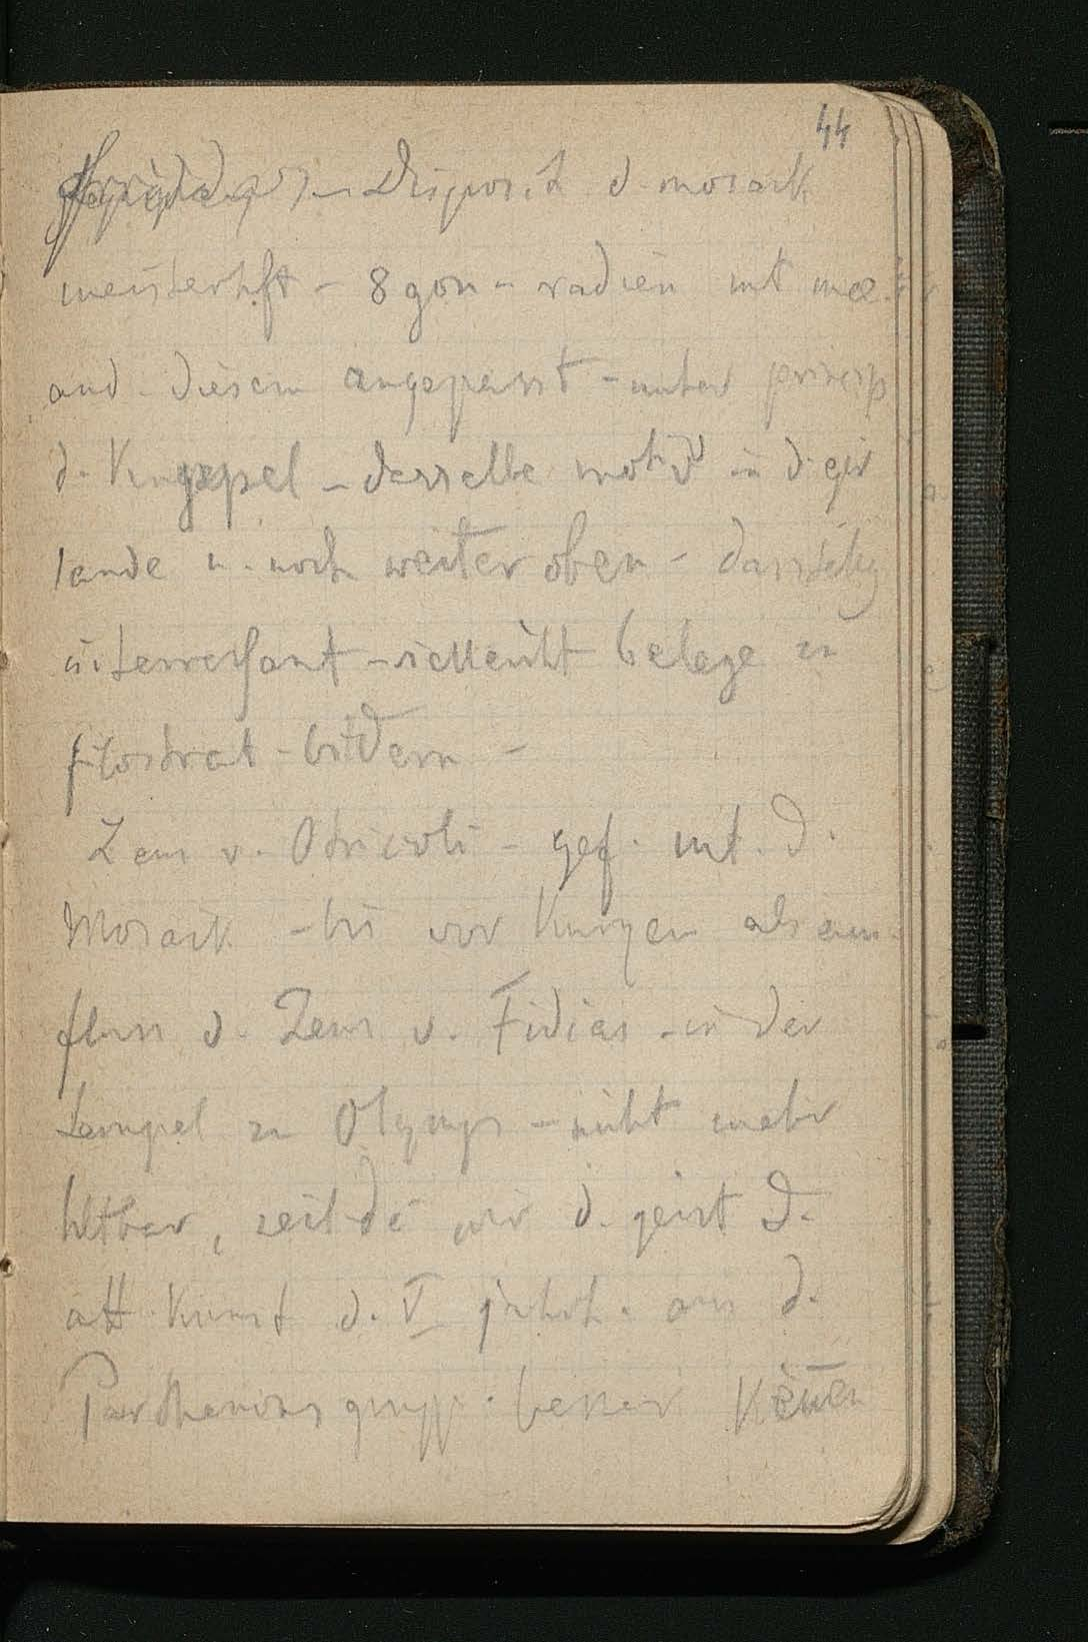 44
– Disposit d. mosaik
meisterhft – 8gon – radien mit mæ
and. diesem angepasst – unter prinzip
d. – desselbe motiv in d. gir
lande u. noch weiter oben –
interressant – vielleicht belege in
filostrat-bildern –
Zeus v. Otricoli – gef. mit. d.
Mosaik – bis vor kurzem als ein
fluss d. Zeus v. Fidias – in der
tempel zu Olymp – nicht mehr
hltbar, seitdē wir d. geist d.
att. Kunst d. V jahrh. aus d.
Parthenons grupp. besser kennen